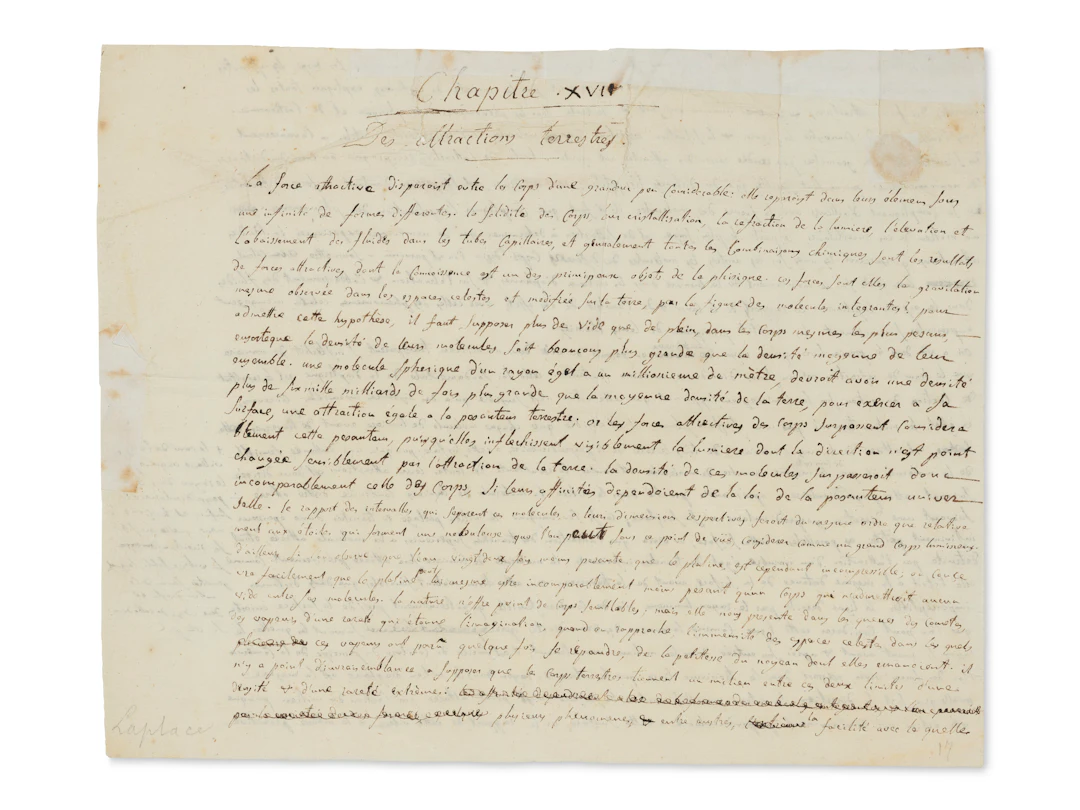 Chapitre XVII
Des attractions terrestres.
La force attractive disparoist entre les corps d'une grandeur peu considerable: elle reparoist dans leurs élémens sous
une infinité de formes differentes. la solidité des Corps, leur cristallisation, la refraction de la lumiere, l'elevation et
l'abaissement des fluides dans les tubes Capillaires, et généralement toutes les Combinaisons chimiques sont les resultats
de forces attractives dont la Connoissance est un des principaux objets de la phisique. ces forces sont elles la gravitation
mesme observée dans les espaces celestes, et modifiée sur la terre, par la figure des molecules integrantes? pour
admettre cette hypothèse, il faut supposer plus de vide que de plein, dans les corps mesmes les plus pesans,
ensorteque la densité de leurs molecules soit beaucoup plus grande que la densité moyenne de leur
ensemble. une molecule spherique d'un rayon égal a un millionieme de mètre, devroit avoir une densité
plus de six mille milliards de fois plus grande que la moyenne densité de la terre, pour exercer a sa
surface, une attraction egale a la pesanteur terrestre; or les forces attractives des corps surpassent considera
blement cette pesanteur, puisqu'elles inflechissent visiblement la lumiere dont la direction n'est point
changée sensiblement par l'attraction de la terre. la densité de ces molecules surpasseroit donc
incomparablement celle des Corps, si leurs affinités dependoient de la loi de la pesanteur univer
selle. le rapport des intervalles qui separent ces molecules a leurs dimensions respectives seroit du mesme ordre que relative
ment aux étoiles qui forment une nebuleuse que l'on peut sous ce point de vue considerer comme un grand corps lumineux.
d'ailleurs que l'eau, vingt deux fois moins pesante que le platine est cependant incompressible,
facilement que le platine, incomparablement moins pesant qu'un corps qui n'admettroit aucun
vide entre ses molecules. la nature n'offre point de corps semblables. mais elle nous presente dans les queues des cometes,
des vapeurs d'une rareté qui étonne l'imagination, quand on rapproche l'immensité des espaces celestes dans les quels
ces vapeurs ont paru quelque fois se répandre, de la petitesse du noyeau dont elles emanoient. il
n'y a point d'invraisemblance a supposer que les corps terrestres tiennent un milieu entre ces deux limites d'une
densité et d'une rareté extrêmes.
plusieurs phenomenes entre autres, la facilité avec la quelle
Laplace
17